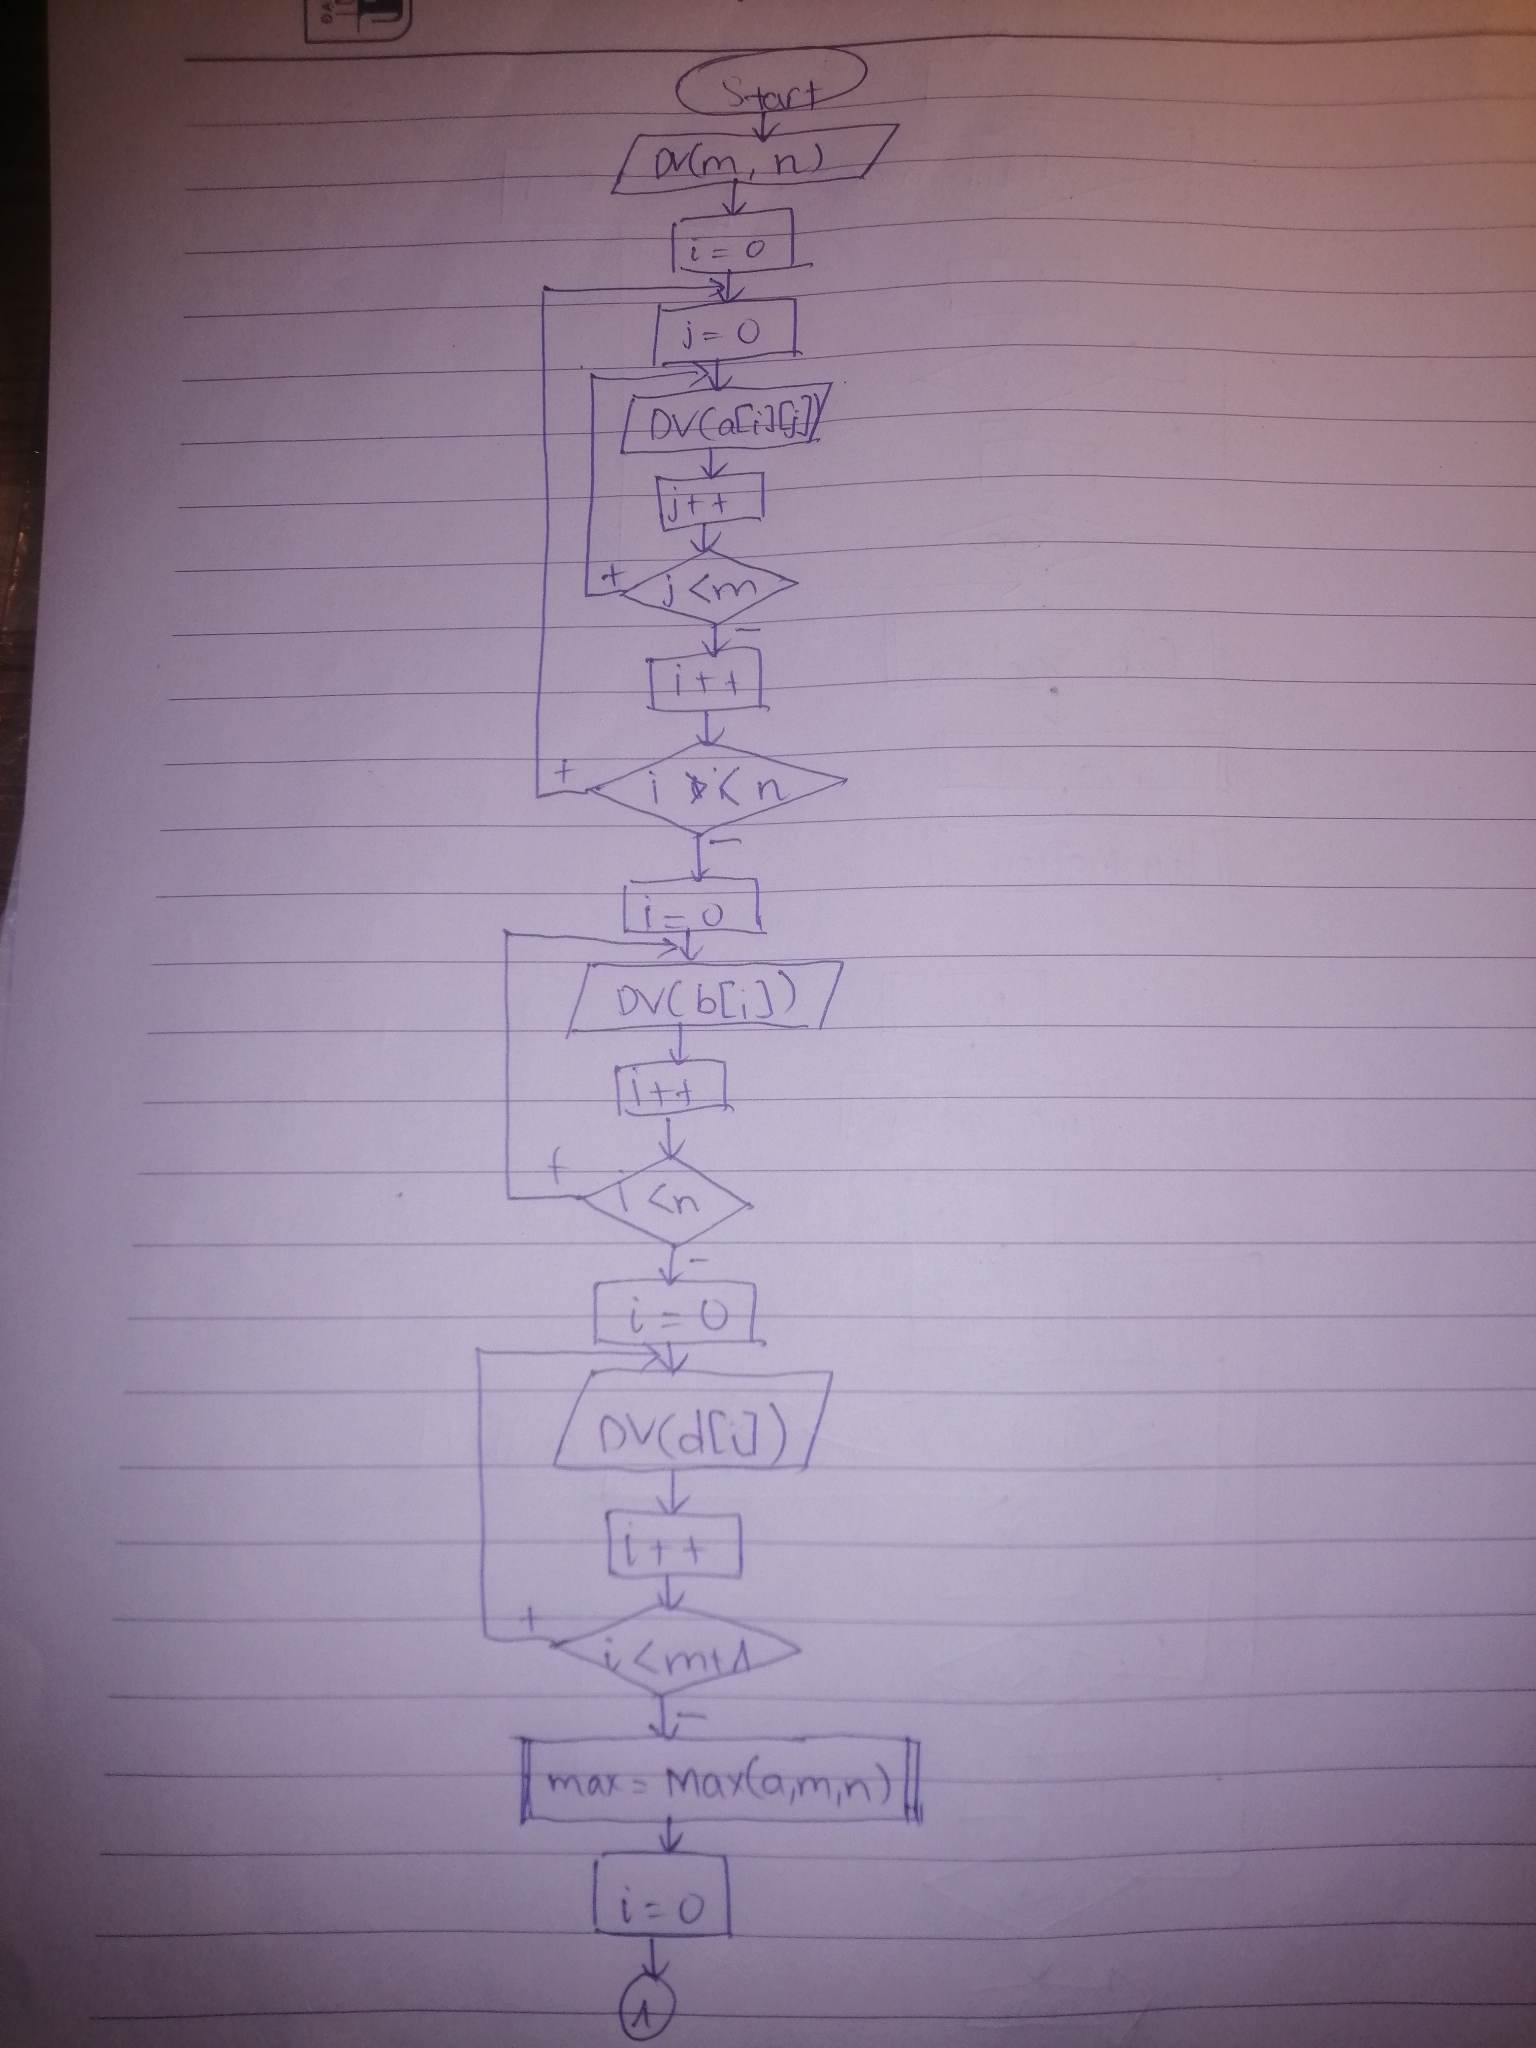 Start
DV(m, n)
i = 0
j = 0
DV(a[i][j])
j++
+
j < m
-
i++
+
i < n
-
i = 0
DV(b[i])
i++
+
i < n
-
i = 0
DV(d[i])
i++
+
i < m+1
-
max = Max(a,m,n)
i = 0
1